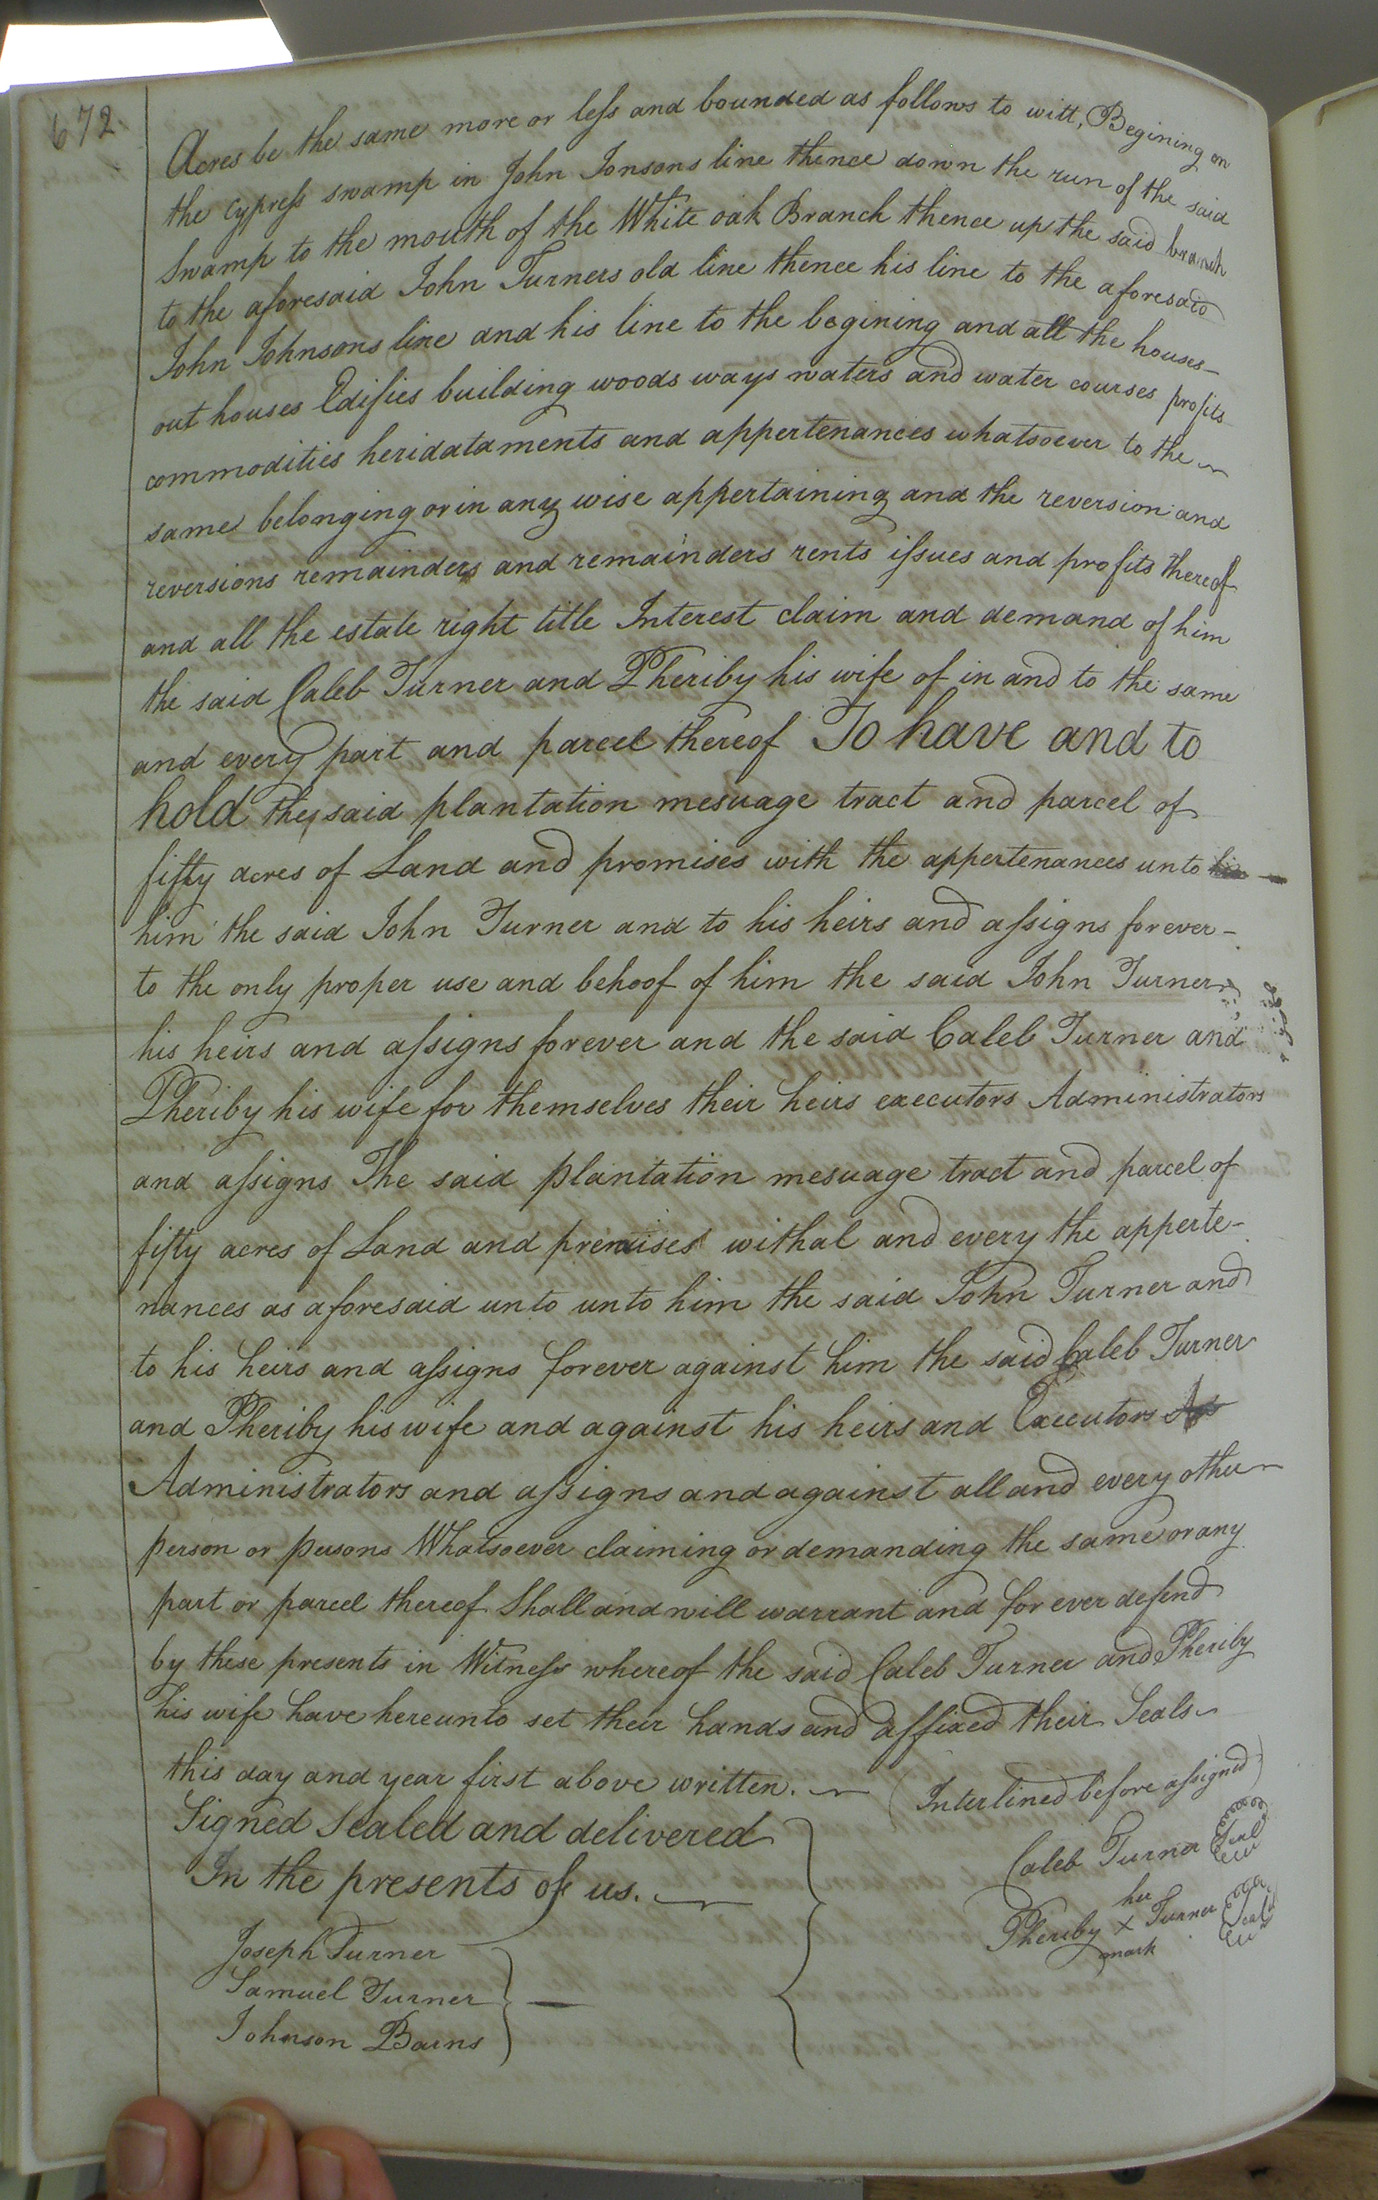 672.
Acres be the same more or less and bounded as follows to witt, Begining on
the cypress swamp in John Jonsons line thence down the run of the said
Swamp to the mouth of the White oak Branch thence up the said branch
to the aforesaid John Turners old line thence his line to the aforesaid
John Johnsons line and his line to the begining and all the houses
out houses Edifies building woods ways waters and water courses profits
commodities heridataments and appertenances whatsoever to the
same belonging or in any wise appertaining and the reversion and
reversions remainders and remainders rents issues and profits thereof
and all the estate right title Interest claim and demand of him
the said Caleb Turner and Pheriby his wife of in and to the same
and every part and parcel thereof To have and to
hold the said plantation mesuage tract and parcel of
fifty acres of Land and promises with the appertenances unto
him the said John Turner and to his heirs and assigns forever
to the only proper use and behoof of him the said John Turner
his heirs and assigns forever and the said Caleb Turner and
Pheriby his wife for themselves their heirs executors Administrators
and assigns The said plantation mesuage tract and parcel of
fifty acres of Land and premises withal and every the apperte-
nances as aforesaid unto unto him the said John Turner and
to his heirs and assigns forever against him the said Caleb Turner
and Pheriby his wife and against his heirs and Executors
Administrators and assigns and against all and every other
person or persons Whatsoever claiming or demanding the same or any
part or parcel thereof Shall and will warrant and for ever defend
by these presents in Witness whereof the said Caleb Turner and Pheriby
his wife have hereunto set their hands and affixed their Seals
this day and year first above written. (Interlined before assigned)
Signed Sealed and delivered
In the presents of us.
Caleb Turner Seal
her
Pheriby X Turner Seal
mark
Joseph Turner
Samuel Turner
Johnson Barns